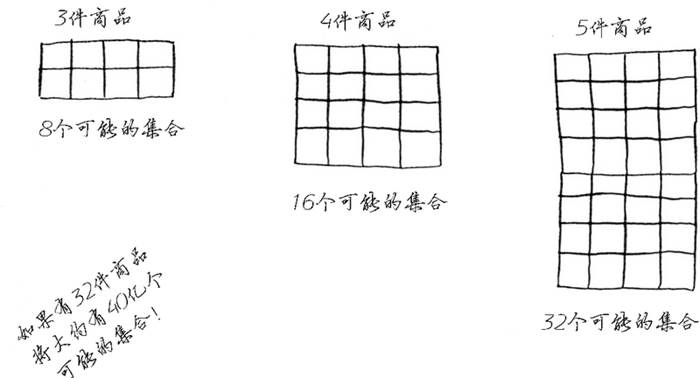 3件商品
8个可能的集合
4件商品
16个可能的集合
5件商品
32个可能的集合
如果有32件商品
将大约有40亿个
可能的集合!